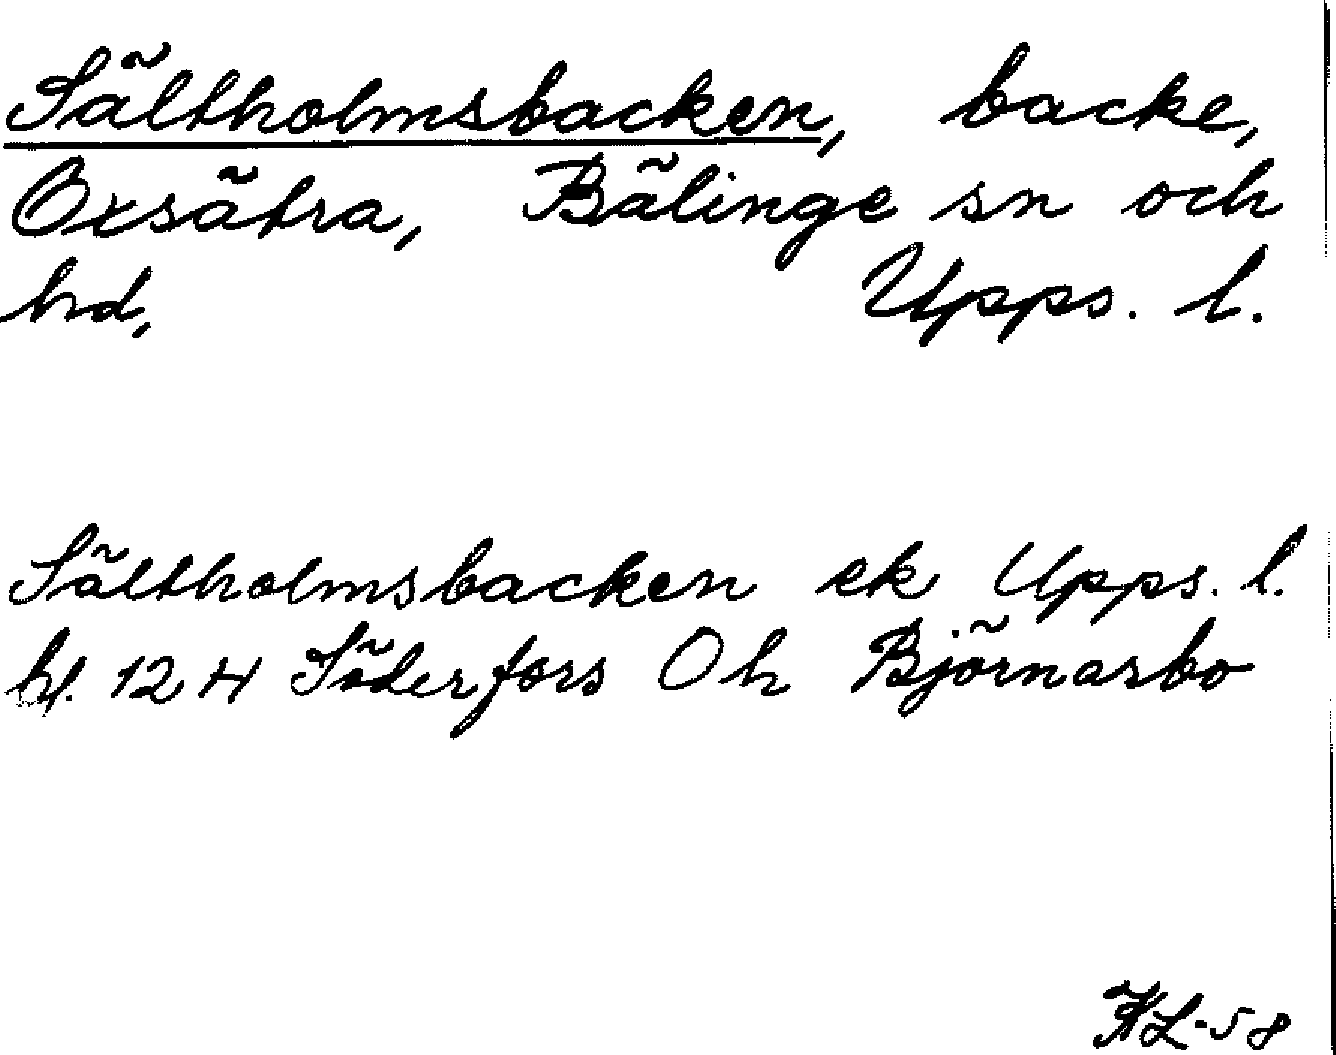 Sältholmsbacken, backe,
Oxsätra, Bälinge sn och
hd, Upps. l.
Sältholmsbacken ek Upps. l.
bl. 12 H Söderfors Oh Björnarbo
KL-58